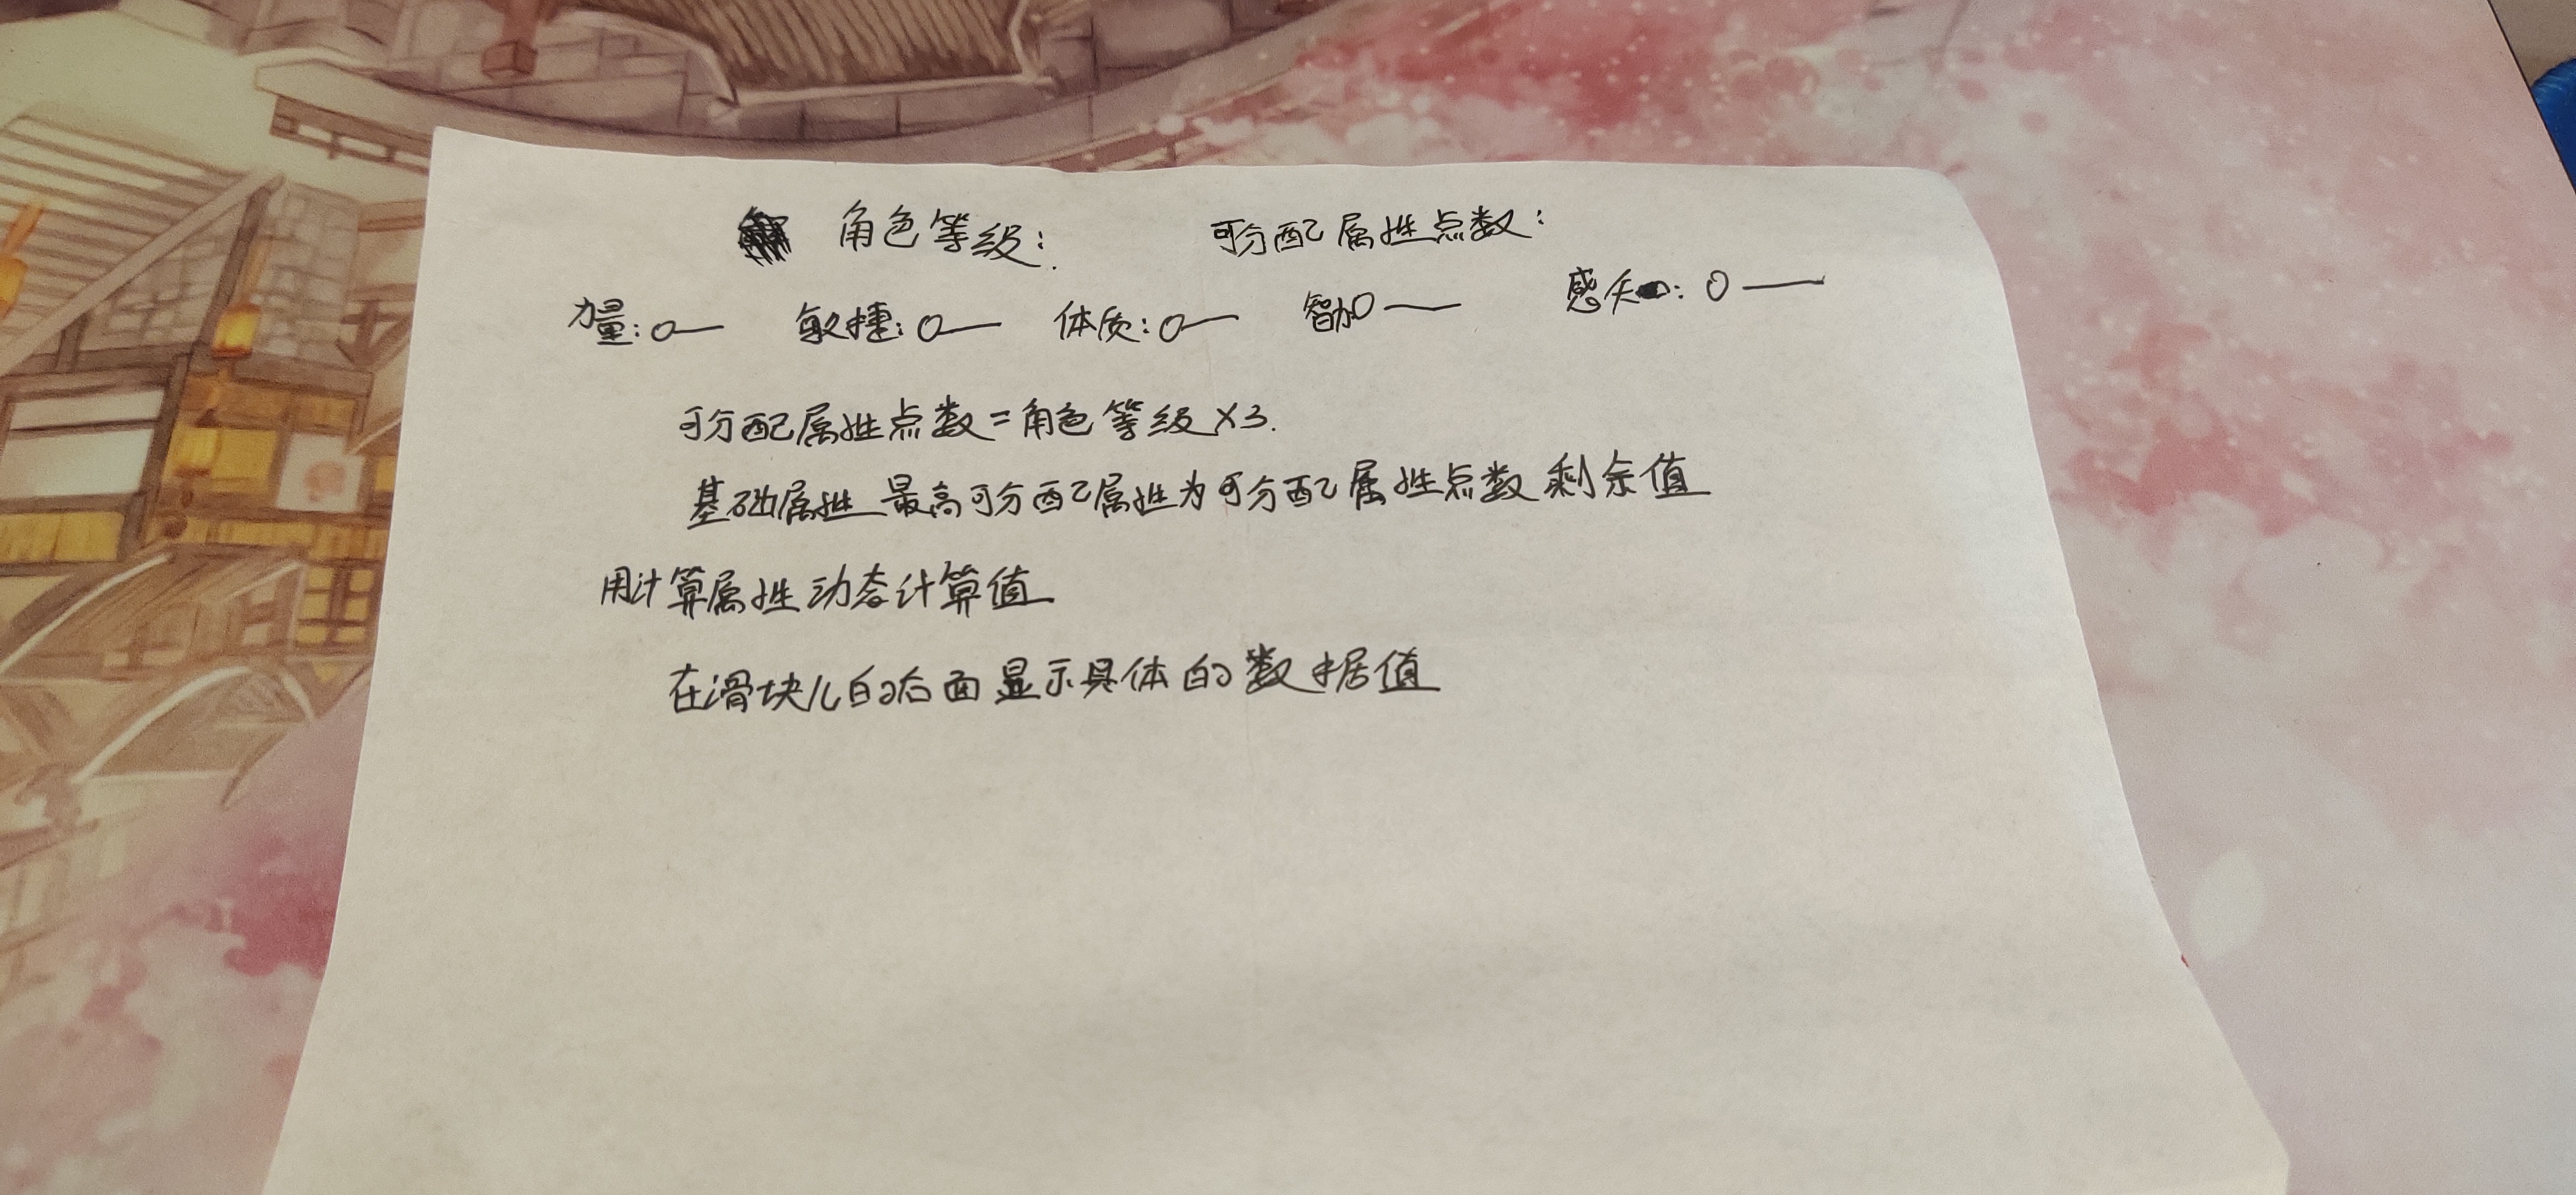 角色等级： 可分配属性点数：
力量： 敏捷： 体质： 智力 感知：
可分配属性点数=角色等级×3.
基础属性最高可分配属性为可分配属性点数剩余值
用计算属性动态计算值
在滑块儿的右面显示具体的数据值